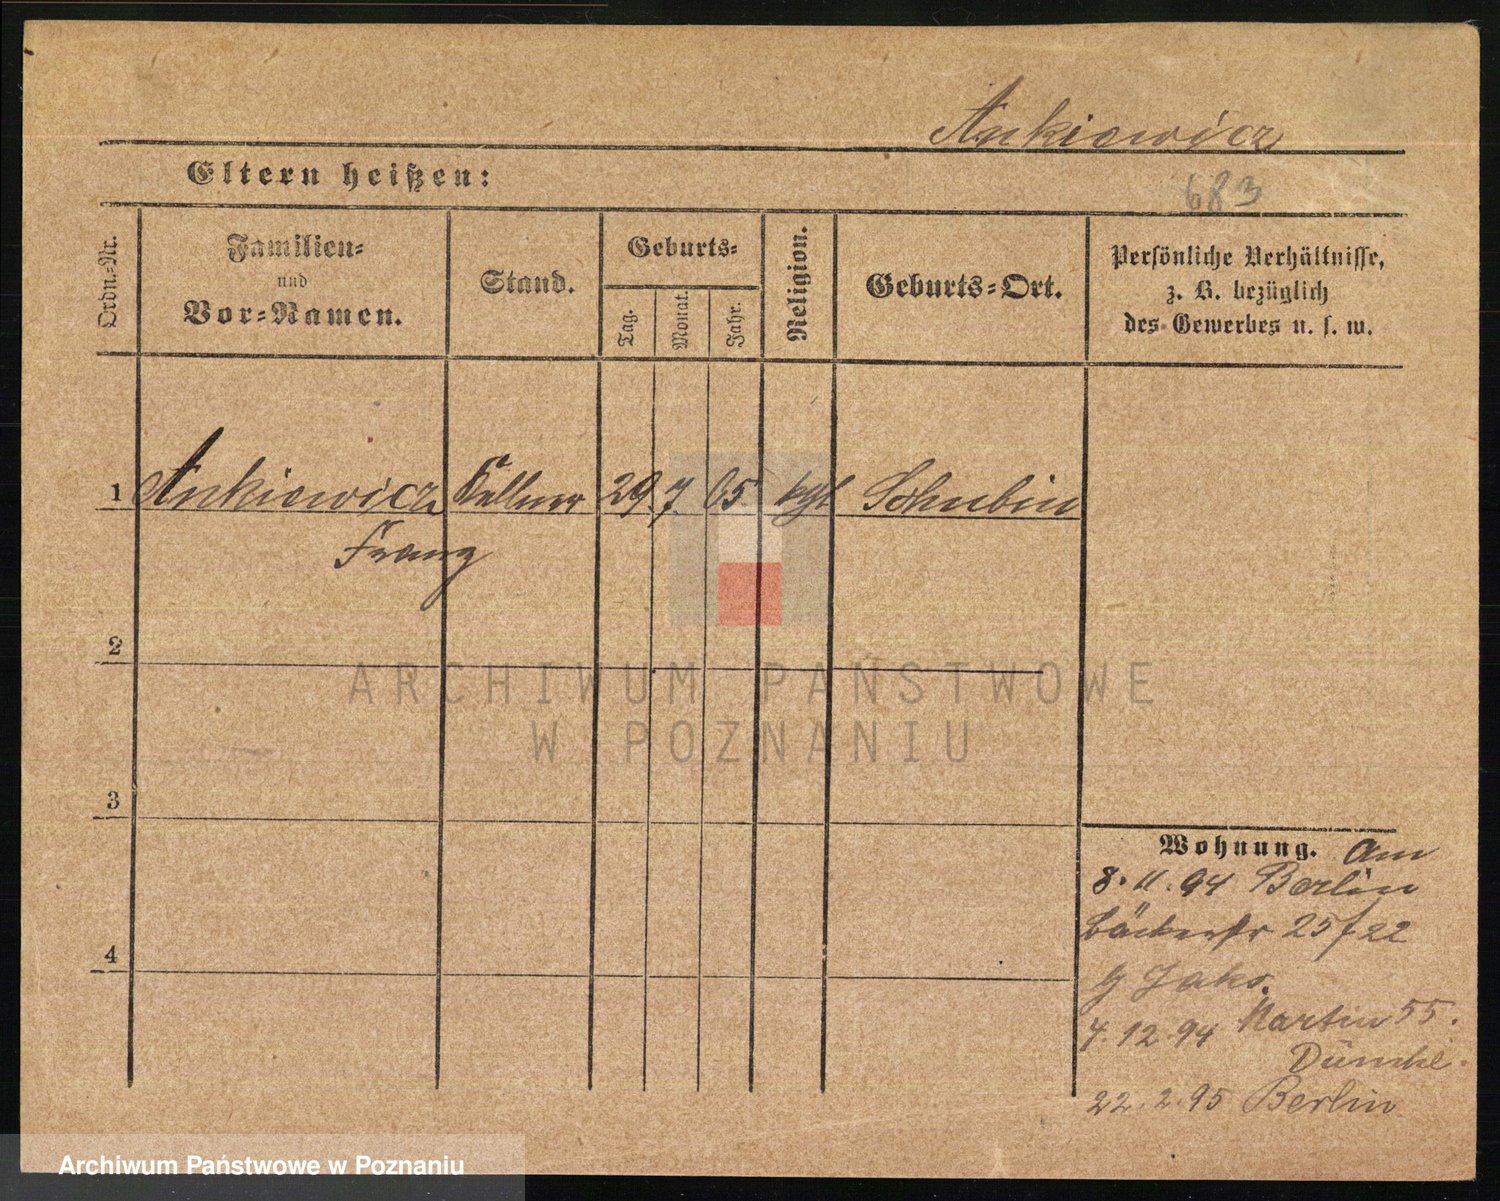 Ankiewicz
Eltern heißen:
683
Ordn.-Nr.
Familien-
und
Vor-Namen.
Stand.
Geburts-
Tag.
Monat.
Jahr.
Religion.
Geburts-Ort.
Persönliche Verhältnisse,
z. B. bezüglich
des Gewerbes u. s. w.
1 Ankiewicz Kellner 29. 7. 65 kgl Schubin
Franz
2
ARCHIWUM PAŃSTWOWE
W POZNANIU
3
Wohnung. Am
8. 11. 94 Berlin
4
7. 12. 94 Martin 55.
22. 2. 95 Berlin
Archiwum Państwowe w Poznaniu